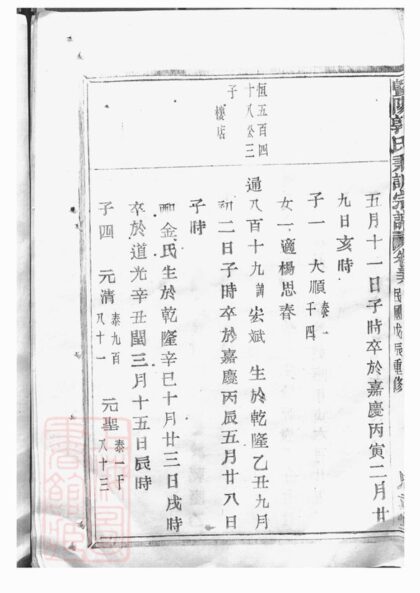 暨陽郭氏宗譜 民國戊辰重修
五月十一日子時卒於嘉慶丙寅二月廿
九日亥時
子一 大順 泰一千四
女一 適楊思春
恆五百四十八公三子 樓店
通八百十九 諱宏斌 生於乾隆乙丑九月
初二日子時卒於嘉慶丙辰五月廿八日
子時
配金氏生於乾隆辛巳十月廿三日戌時
卒於道光辛丑閏三月十五日辰時
子四 元清 泰九百八十一 元聖 泰一千八十三